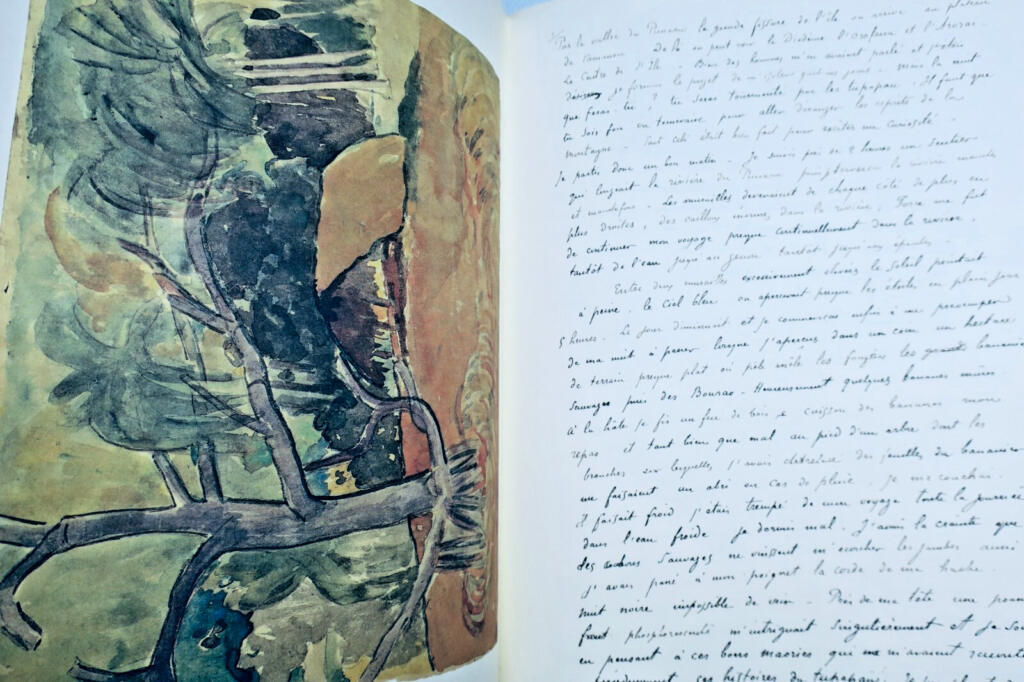 Par la vallée du Punaru la grande fissure de l'île on arrive au plateau
de Tamanou. De là on peut voir le Diadème l'Orofena et l'Aroraï.
Le Centre de l'Ile — Bien des hommes m'en avaient parlé et
je formai le projet de m'isoler quelques jours — mais la nuit
que feras tu? tu seras tourmenté par les tupapau. Il faut que
tu sois fou ou téméraire pour aller déranger les esprits de la
montagne — Tout cela était bien fait pour exciter ma curiosité.
Je partis donc un beau matin — Je suivis près de 2 heures un sentier
qui longeait la rivière du Punaru puis traversai la rivière mainte
et mainte fois. Les murailles devenaient de chaque côté de plus en
plus droites, des cailloux énormes dans la rivière. Force me fut
de continuer mon voyage presque continuellement dans la rivière
tantôt de l'eau jusqu'au genou tantôt jusqu'aux épaules —
Entre deux murailles excessivement élevées le soleil pointait
à peine. le ciel bleu on apercevait presque les étoiles en plein jour
5 heures. Le jour diminuait et je commençais enfin à me préoccuper
de ma nuit à passer lorsque j'aperçus dans un coin un hectare
de terrain presque plat où pêle mêle les fougères les bananiers
sauvages puis des Bourao — Heureusement quelques bananes mûres.
À la hâte je fis un feu de bois cuisson des bananes mon
repas et tant bien que mal au pied d'un arbre dont les
branches sur lesquelles j'avais des feuilles du bananier
me faisaient un abri en cas de pluie, je me couchai.
Il faisait froid j'étais trempé de mon voyage toute la journée
dans l'eau froide je dormis mal. J'avais la crainte que
des cochons Sauvages ne vinssent m'écorcher les jambes aussi
j'avais passé à mon poignet la corde de ma hache.
Nuit noire impossible de voir — Près de ma tête une
phosphorescente m'intriguait singulièrement et je
en pensant à ces bons maories qui me m'avaient
ces histoires du tupapau.